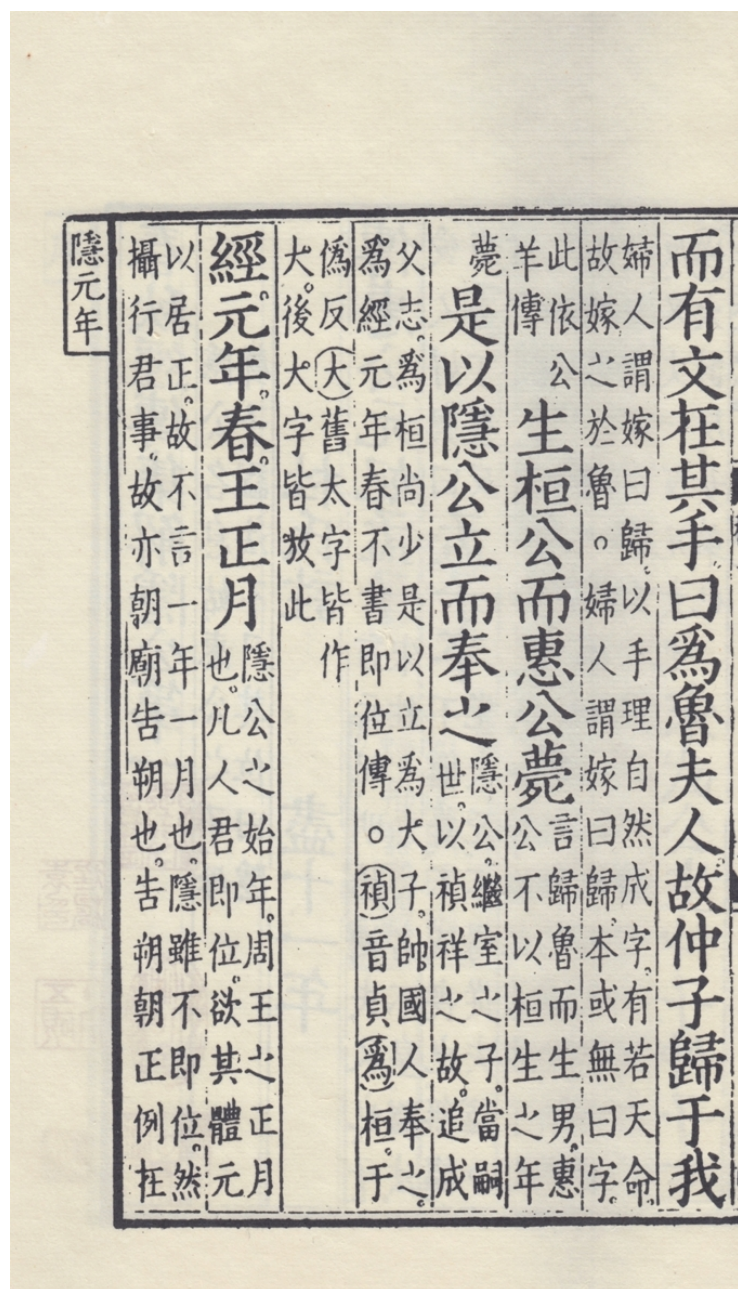 而有文在其手曰爲魯夫人故仲子歸于我
婦人謂嫁曰歸以手理自然成字有若天命
故嫁之於魯○婦人謂嫁曰歸本或無曰字
此依公
羊傳
生桓公而惠公薨
言歸魯而生男惠
公不以桓生之年
薨
是以隱公立而奉之
隱公繼室之子當嗣
世以禎祥之故追成
父志爲桓尚少是以立爲大子帥國人奉之
爲經元年春不書即位傳○(禎)音貞(爲)桓于
僞反(大)舊太字皆作
大後大字皆放此
經元年春王正月
隱公之始年周王之正月
也凡人君即位欲其體元
以居正故不言一年一月也隱雖不即位然
攝行君事故亦朝廟告朔也告朔朝正例在
隱元年